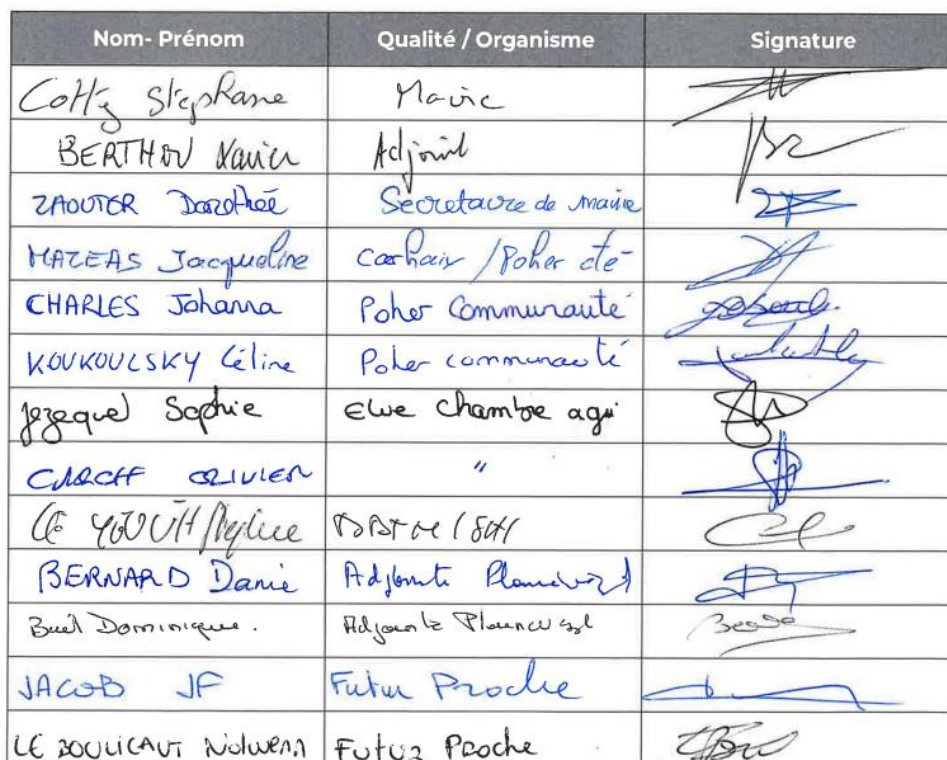 Nom- Prénom Qualité / Organisme Signature
Cotty Stephane Maire
BERTHOU Xavier Adjoint
ZAOUTER Dorothée Secretaire de mairie
MAZEAS Jacqueline Carhaix / Poher cté
CHARLES Johanna Poher Communauté
KOUKOULSKY Céline Poher communauté
Jezequel Sophie Elue chambre agri
OLIVIER "
LE
BERNARD Danie Adjointe
Dominique. Adjointe
JACOB JF Futur Proche
LE BOULICAUT Nolwenn Futur Proche